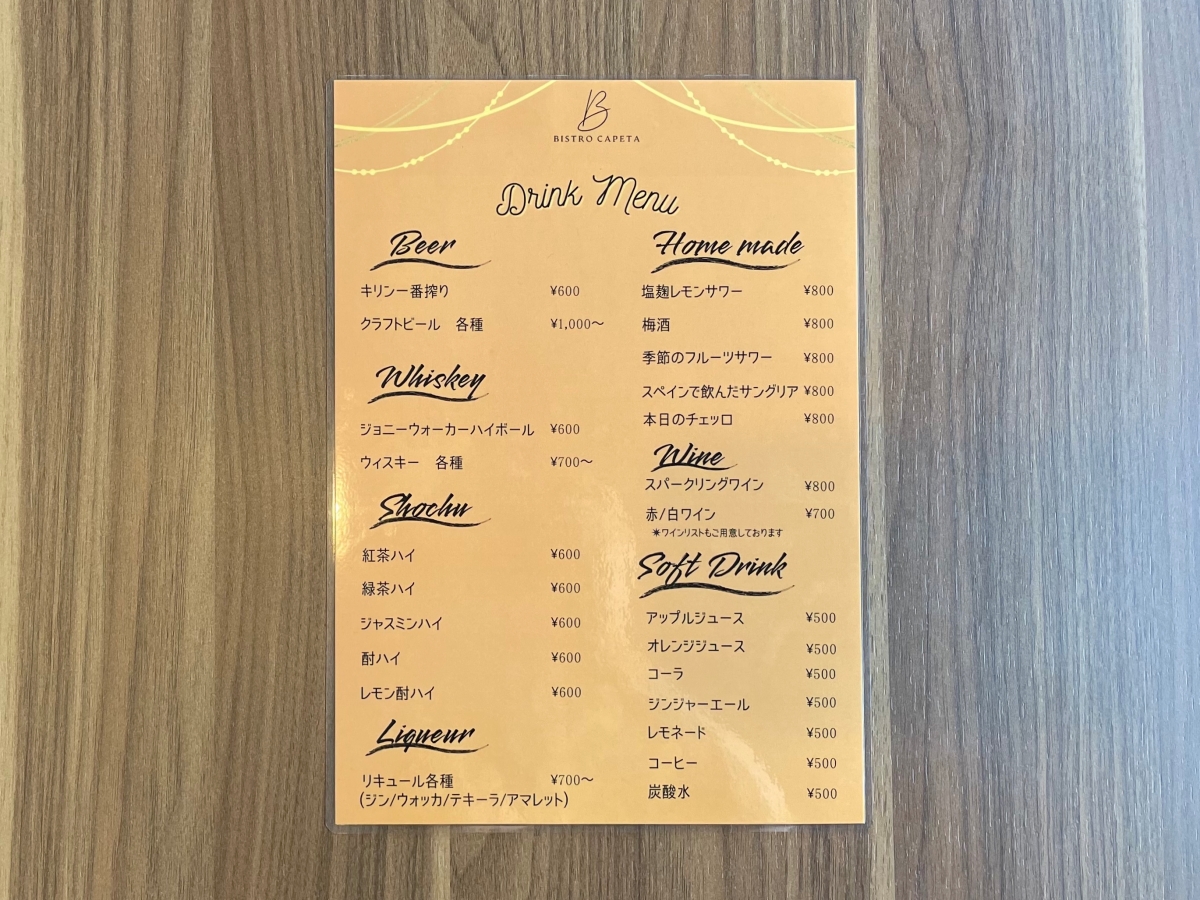 B
BISTRO CAPETA
Drink Menu
Beer
キリン一番搾り ¥600
クラフトビール 各種 ¥1,000〜
Whiskey
ジョニーウォーカーハイボール ¥600
ウィスキー 各種 ¥700〜
Shochu
紅茶ハイ ¥600
緑茶ハイ ¥600
ジャスミンハイ ¥600
酎ハイ ¥600
レモン酎ハイ ¥600
Liqueur
リキュール各種 ¥700〜
(ジン/ウォッカ/テキーラ/アマレット)
Home made
塩麹レモンサワー ¥800
梅酒 ¥800
季節のフルーツサワー ¥800
スペインで飲んだサングリア ¥800
本日のチェッロ ¥800
Wine
スパークリングワイン ¥800
赤/白ワイン ¥700
✳ワインリストもご用意しております
Soft Drink
アップルジュース ¥500
オレンジジュース ¥500
コーラ ¥500
ジンジャーエール ¥500
レモネード ¥500
コーヒー ¥500
炭酸水 ¥500